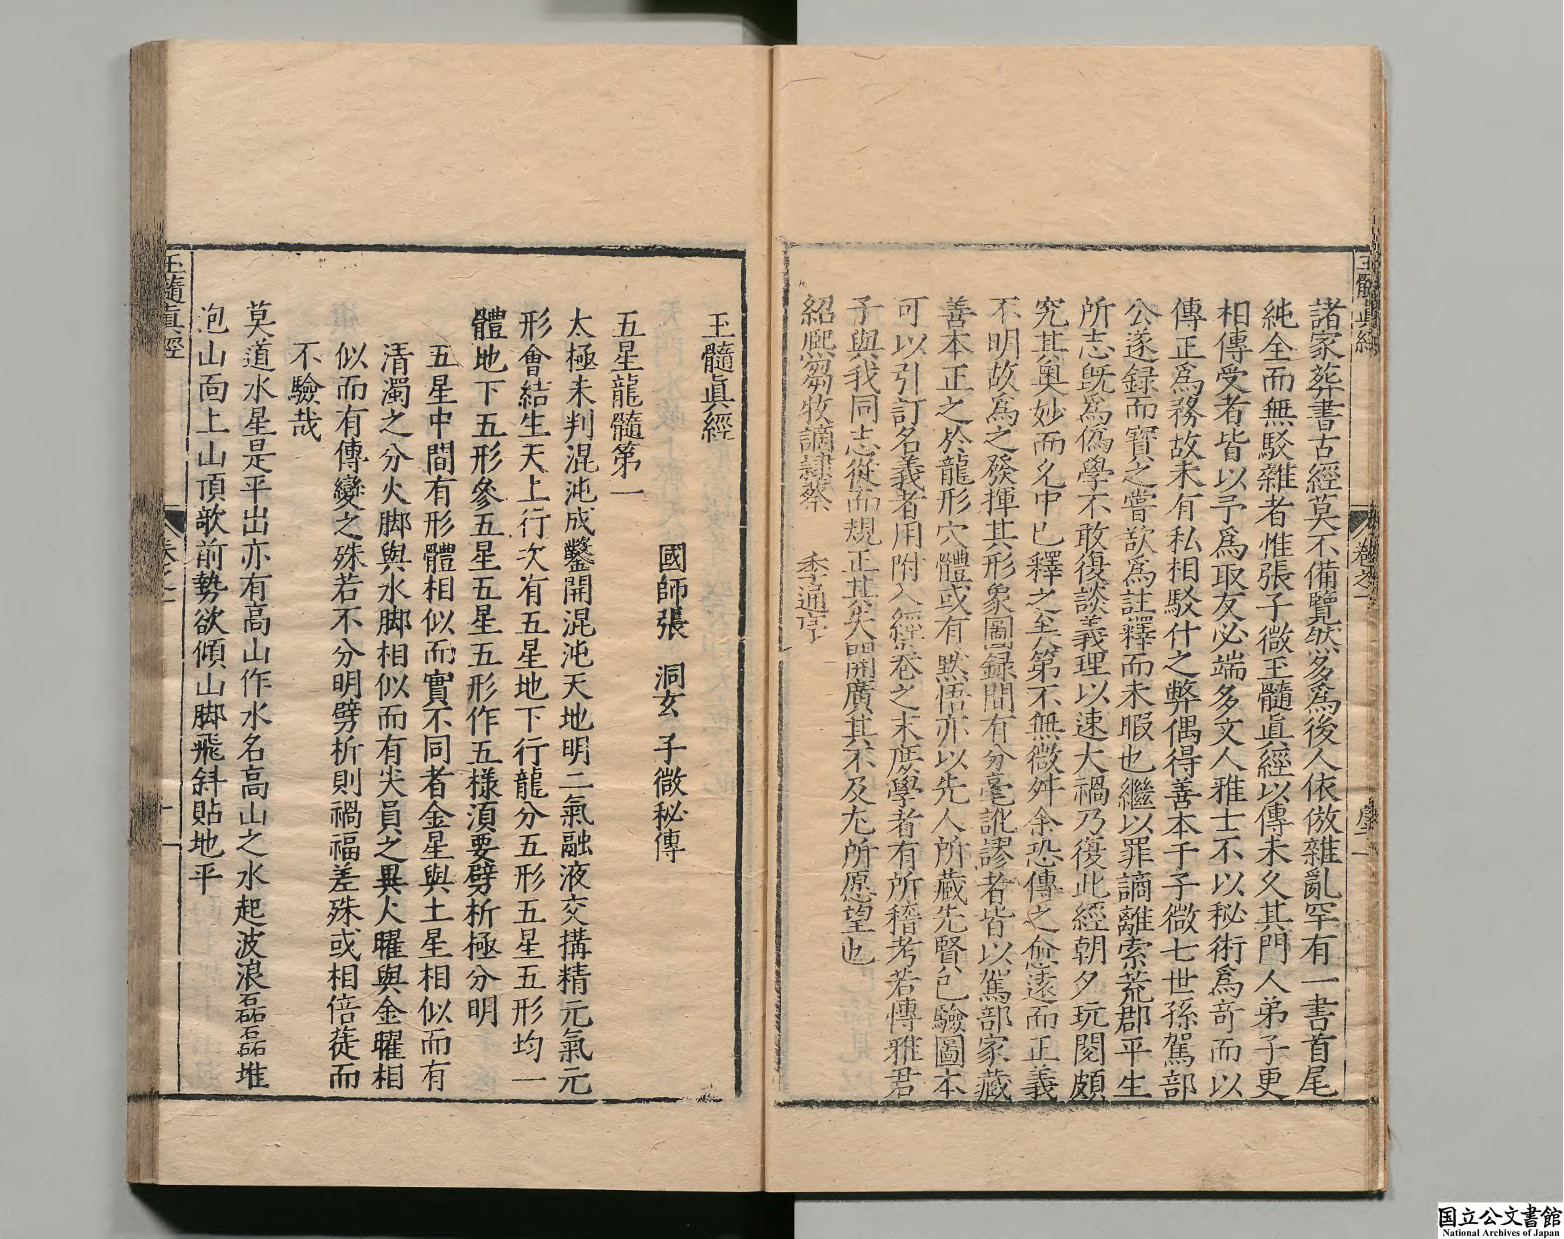 諸家葬書古經莫不備覽然多爲後人依倣雜亂罕有一書首尾
純全而無駁雜者惟張子微玉髓眞經以傳未久其門人弟子更
相傳受者皆以予爲取友必端多文人雅士不以秘術爲竒而以
傳正爲務故未有私相駁什之弊偶得善本于子微七世孫駕部
公遂録而寳之嘗欲爲註釋而未暇也繼以罪謫離索荒郡平生
所志旣爲僞學不敢復談義理以速大禍乃復此經朝夕玩閱頗
究其奧妙而幺中已釋之至公第不無微舛余恐傳之愈遠而正義
不明故爲之發揮其形象圖録間有分毫訛謬者皆以駕部家藏
善本正之於龍形穴體或有黙悟亦以先人所藏先賢已驗圖本
可以引訂名義者用附入經卷之末庶學者有所稽考若博雅君
子與我同志從而規正其失而開廣其不及尢所愿望也
紹熙芻牧謫隷蔡 季通序
玉髓眞經
國師張 洞玄 子微秘傳
五星龍髓第一
太極未判混沌成鑿開混沌天地明二氣融液交搆精元氣元
形會結生天上行次有五星地下行龍分五形五星五形均一
體地下五形參五星五星五形作五樣須要劈析極分明
五星中間有形體相似而實不同者金星與土星相似而有
清濁之分火脚與水脚相似而有尖員之異火曜與金曜相
似而有傳變之殊若不分明劈析則禍福差殊或相倍蓰而
不驗哉
莫道水星是平出亦有高山作水名高山之水起波浪磊磊堆
泡山面上山頂歌前勢欲傾山脚飛斜貼地平
玉髓眞經 卷之一 十一
玉髓眞經 卷之一 序二
国立公文書館
National Archives of Japan